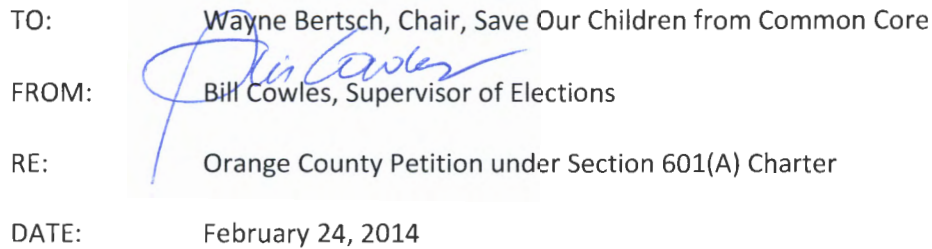 TO: Wayne Bertsch, Chair, Save Our Children from Common Core
Bill Cowles
FROM: Bill Cowles, Supervisor of Elections
RE: Orange County Petition under Section 601(A) Charter
DATE: February 24, 2014